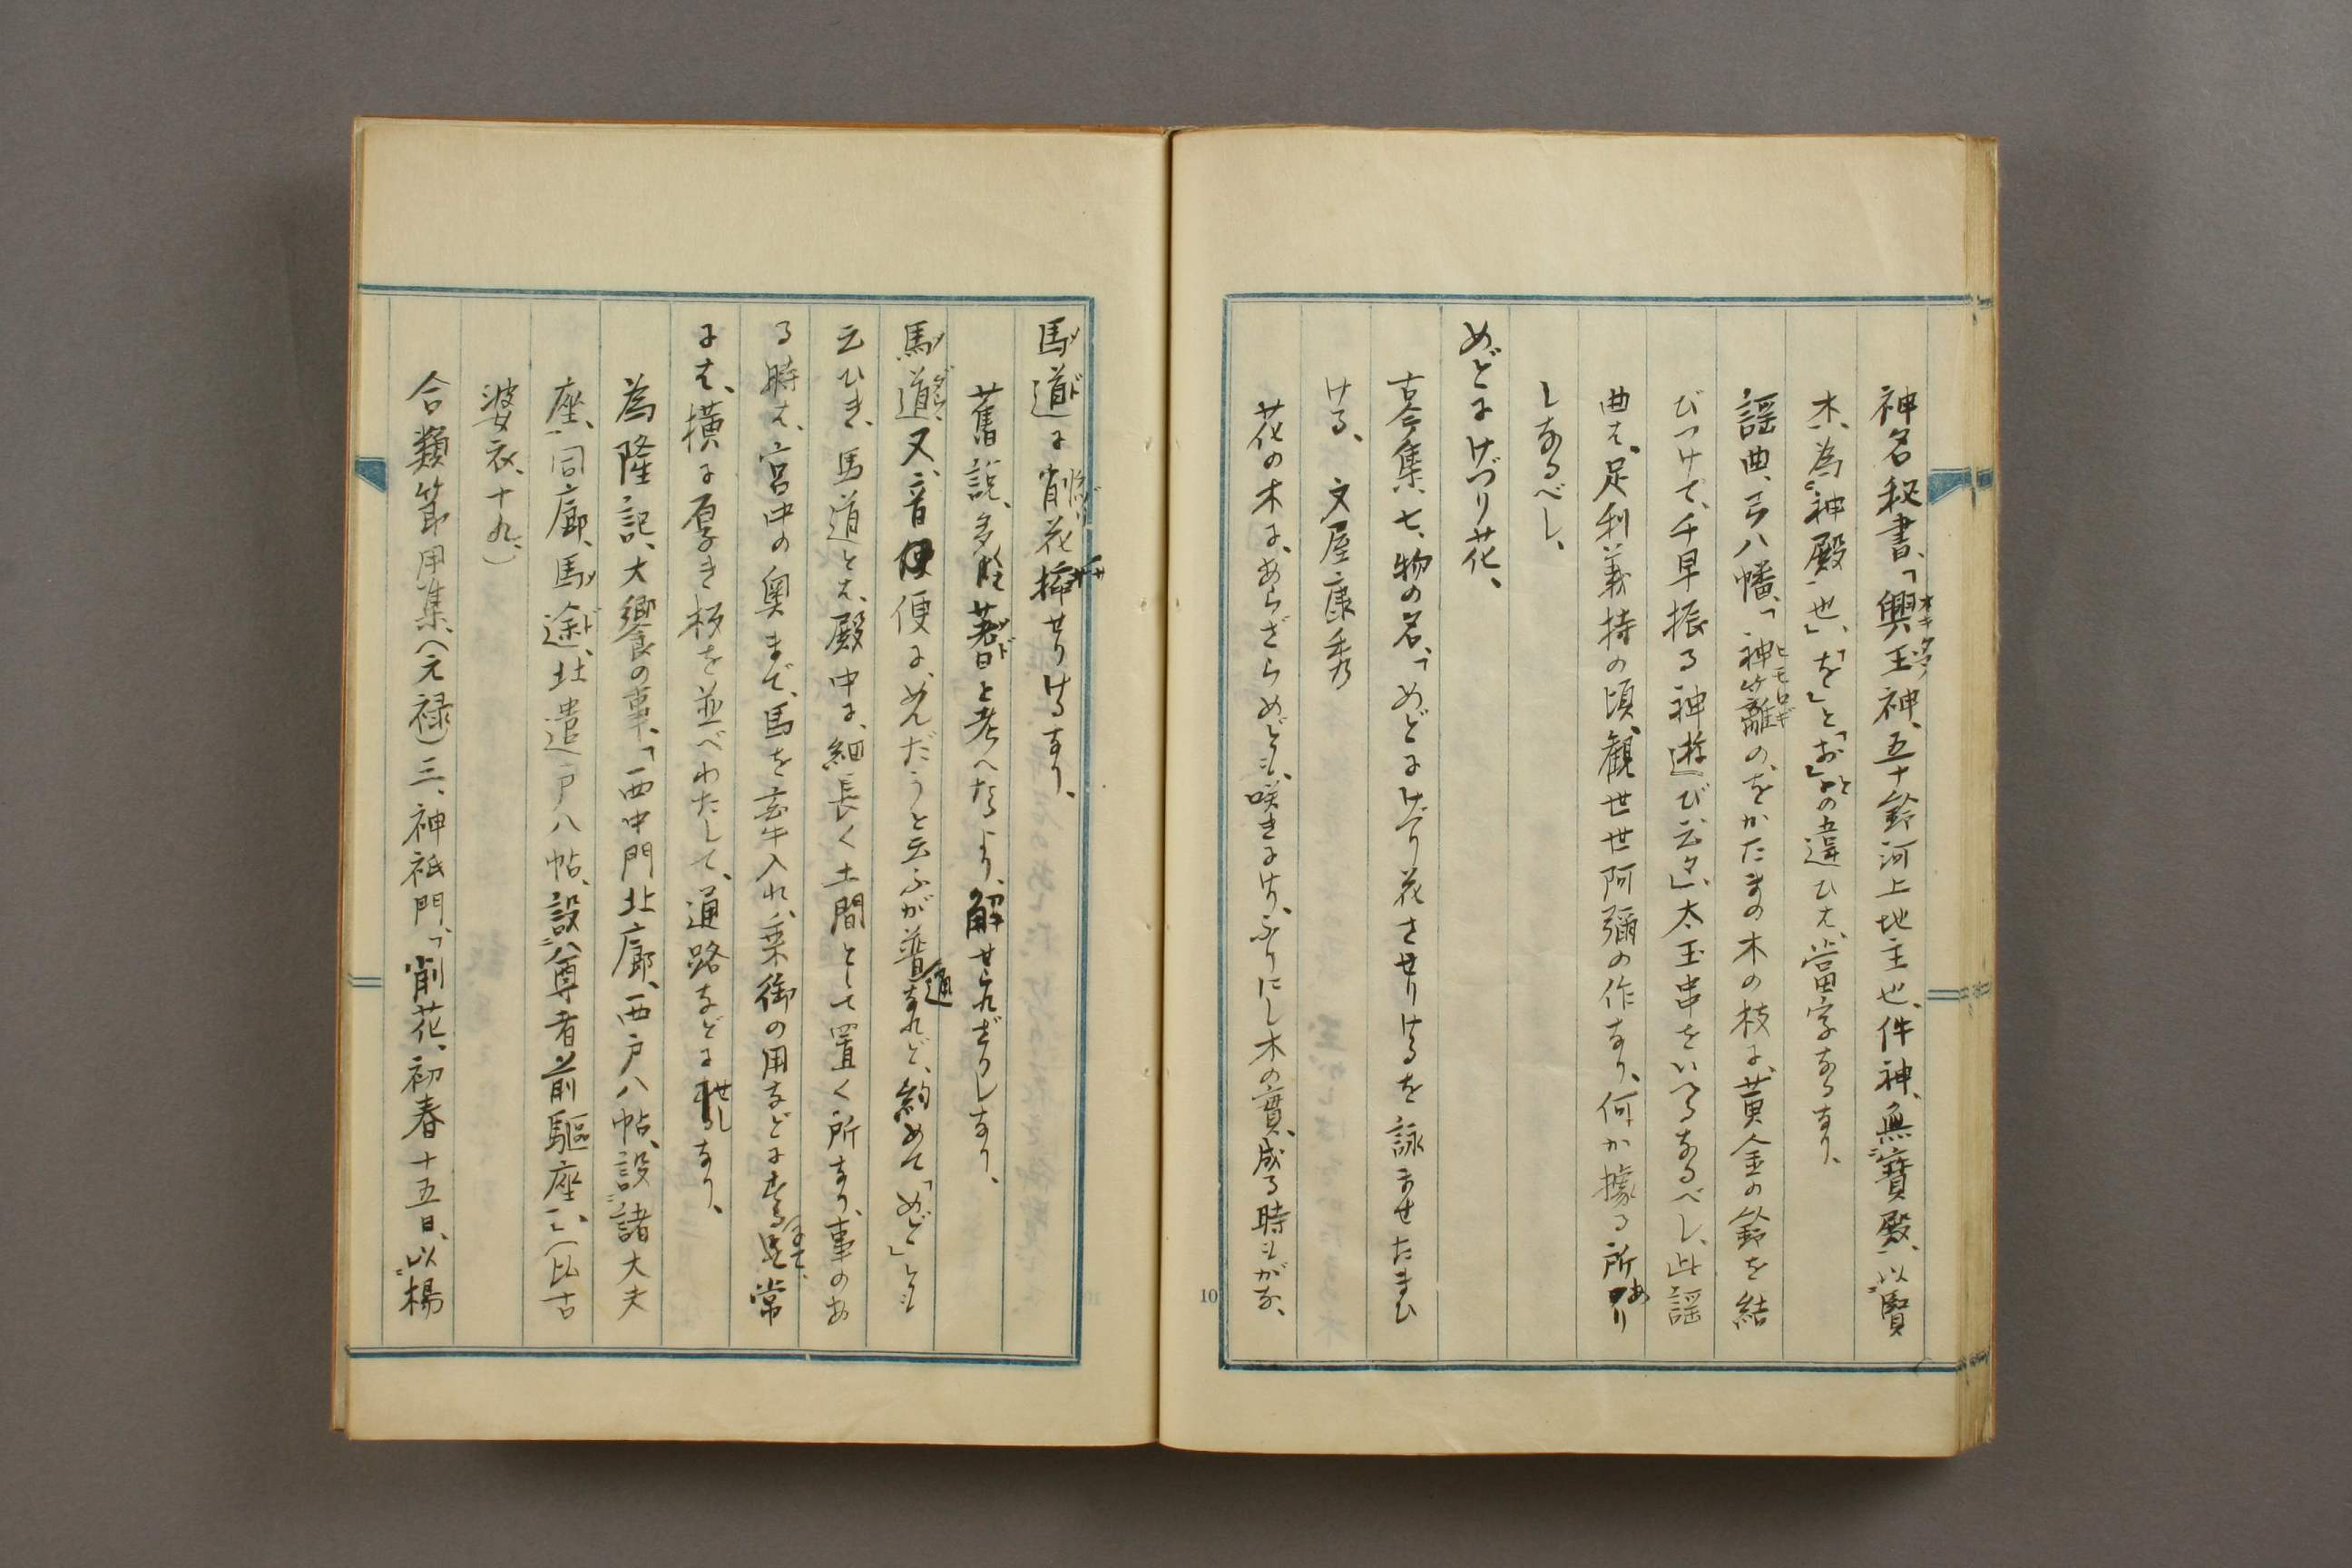 神名秘書、「興玉神、五十鈴河上地主也、件神、無寶殿、以賢
木、為神殿也」、「を」と「お」との違ひは、當字なるなり、
謡曲、弓八幡、「神籬の、をかたまの木の枝に、黄金の鈴を結
びつけて、千早振る神遊び、云々」、太玉串をいへるなるべし、此謡
曲は、足利義持の頃、観世世阿彌の作なり、何か據る所あり
しなるべし、
めどにけづり花、
古今集、七、物の名、「めどにけづり花させりけるを詠ませたまひ
ける、文屋康秀
花の木に、あらざらめども、咲きにけり、ふりにし木の實、成る時もがな、
10
馬道に削花挿せりけるなり、
舊説、多ク蓍ト考へたるより、解せられざりしなり、
馬道、又、音便に、めんだうと云ふが普通なれど、約めて「めど」とも
云ひき、馬道とは、殿中に、細長く土間として置く所なり、事のあ
る時は、宮中の奥まで、馬を牽入れ、乗御の用などにする、常
には、横に厚き板を並べわたして、通路などにせしなり、
為隆記、大饗の事、「西中門北廊、西戸八帖、設諸大夫
座、同廊、馬途、北遣戸八帖、設尊者前驅座云、(比古
婆衣、十九、)
合類節用集、(元禄)三、神祇門、「削花、初春十五日、以楊